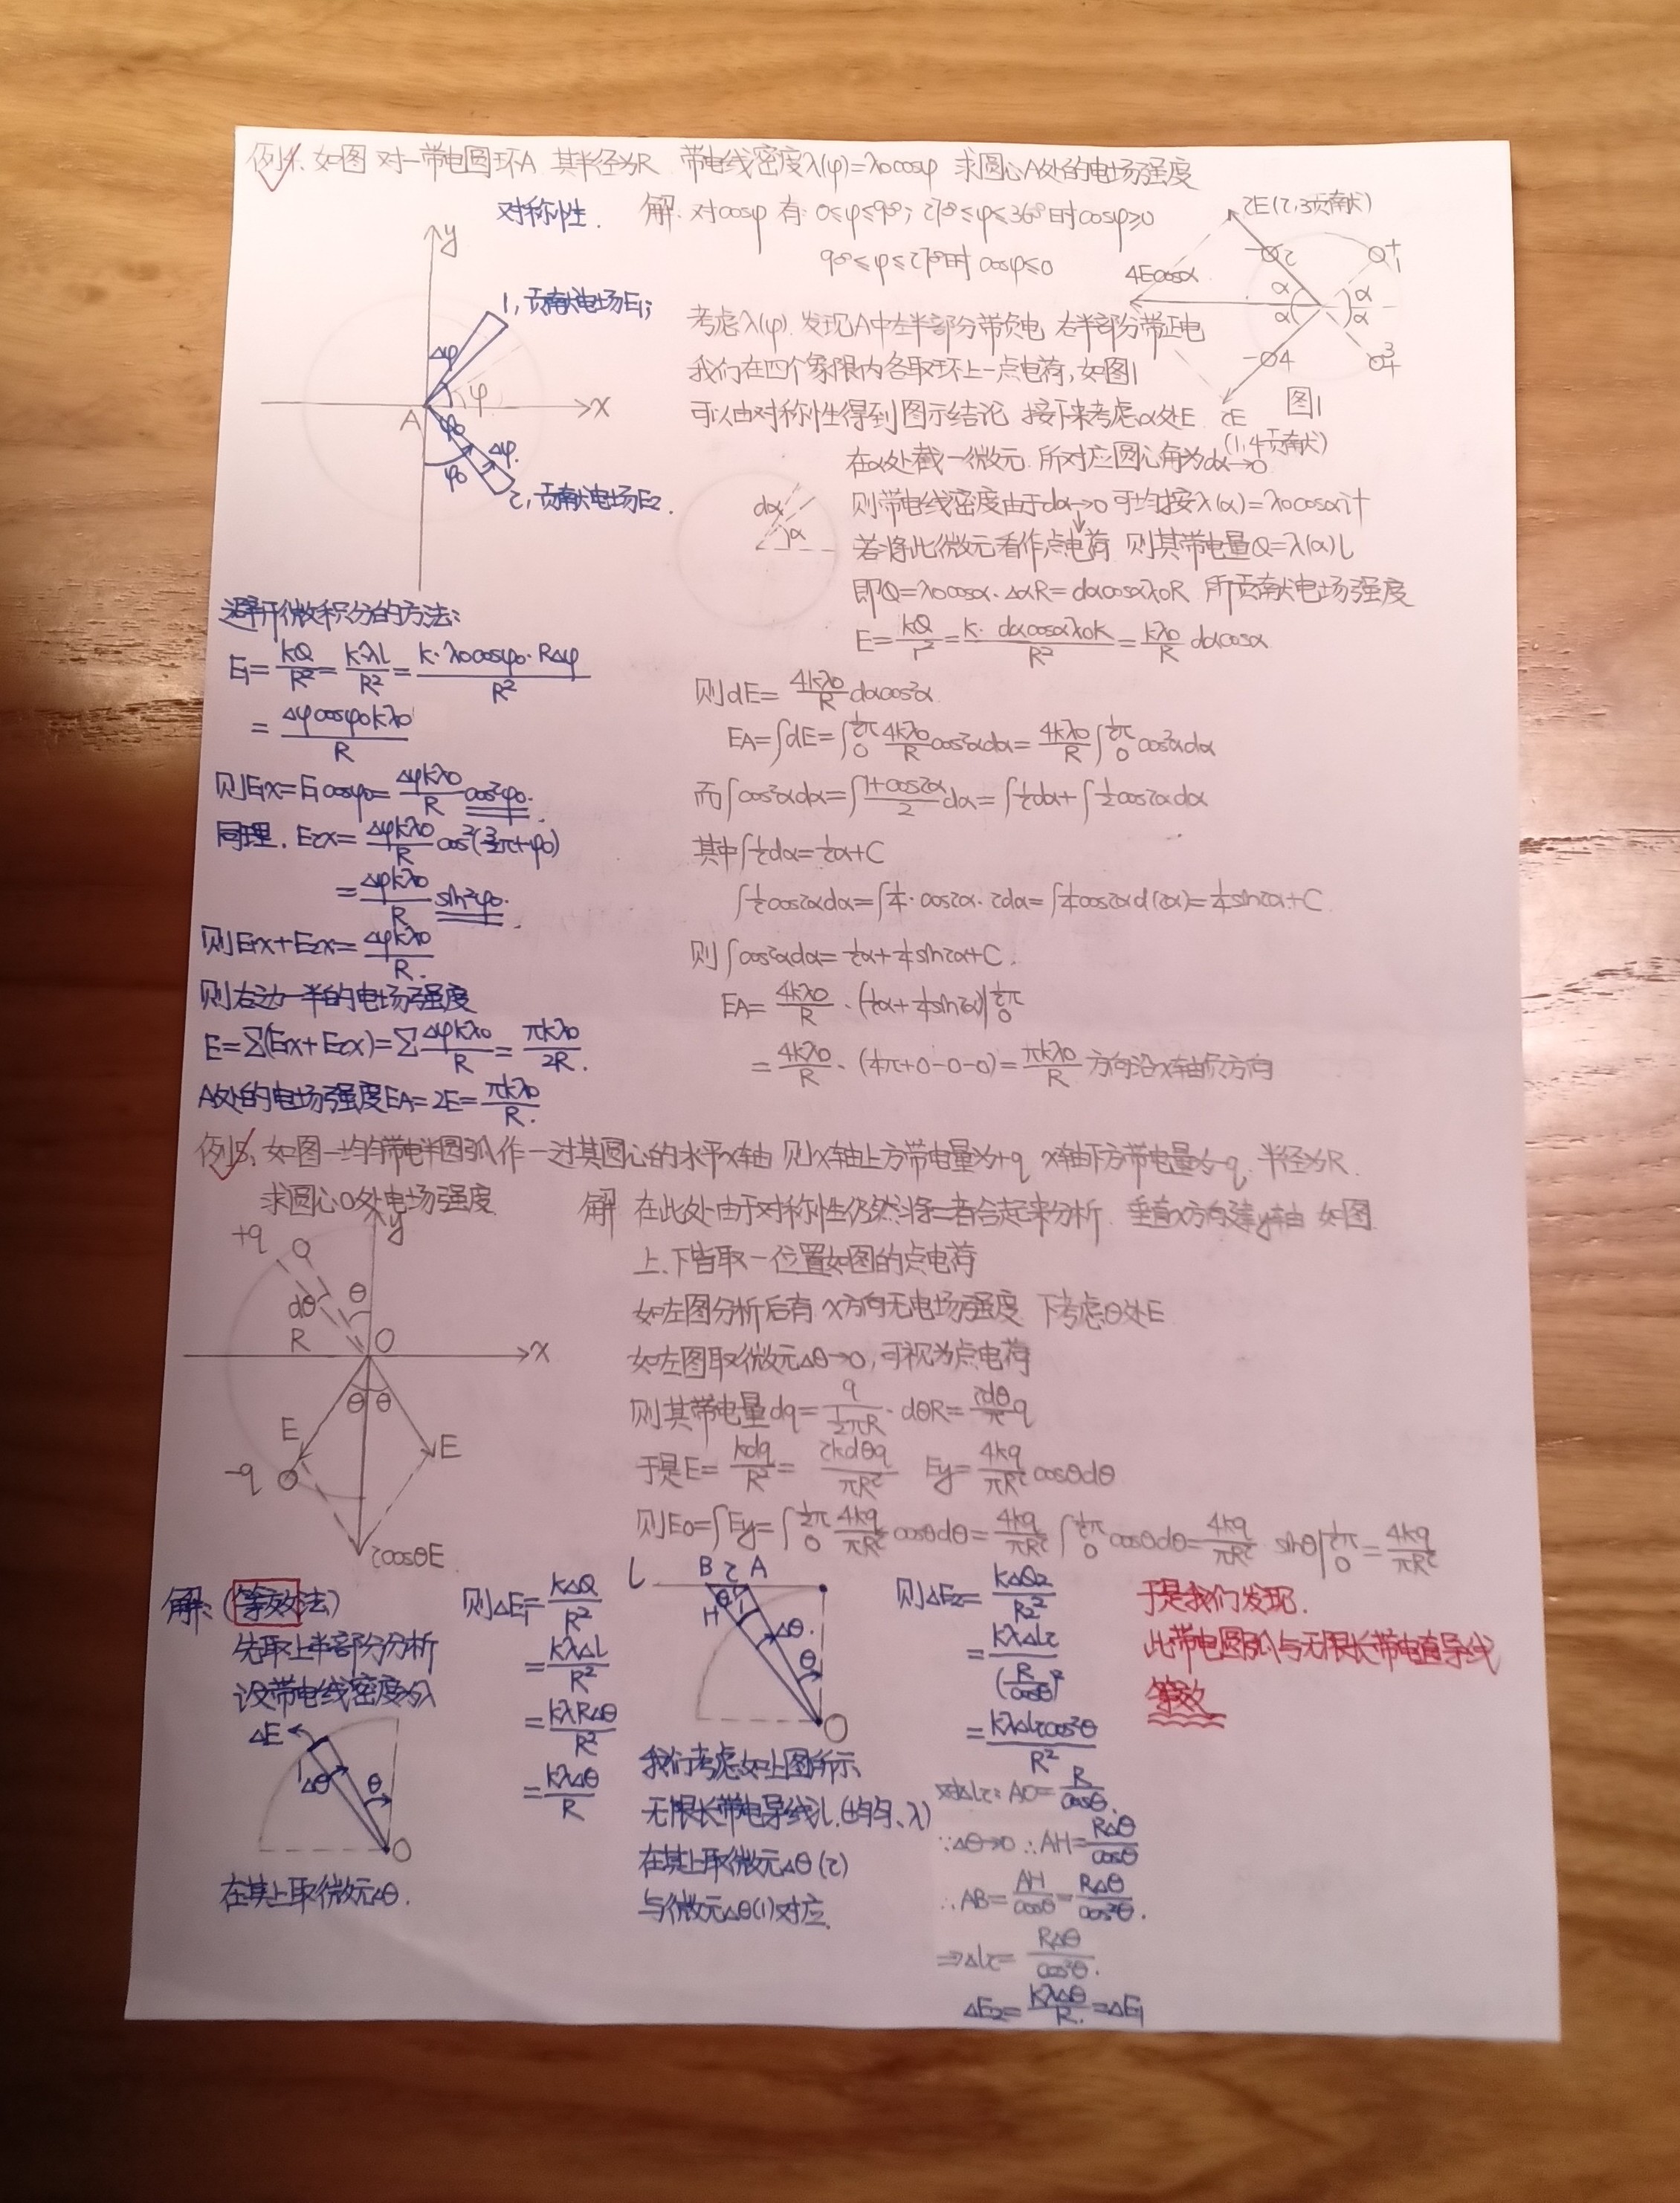 例4. 如图 对一带电圆环A 其半径为R 带电线密度λ(φ)=λ0cosφ 求圆心A处的电场强度
对称性. 解: 对cosφ 有: 0≤φ≤90°; 270°≤φ≤360°时 cosφ≥0
90°≤φ≤270°时 cosφ≤0
考虑λ(φ). 发现A中左半部分带负电 右半部分带正电
我们在四个象限内各取环上一点电荷, 如图1
可以由对称性得到图示结论 接下来考虑α处E
2E(2,3贡献)
4Ecosα
α
α
α
α
2E
(1,4贡献)
图1
y
1, 贡献电场E1;
Δφ
φ
A
x
φ0
Δφ.
φ0
2, 贡献电场E2.
在α处截一微元 所对应圆心角为dα→0
则带电线密度由于dα→0 可均按λ(α)=λ0cosα计
若将此微元看作点电荷 则其带电量Q=λ(α)L
即Q=λ0cosα·ΔαR=dαcosαλ0R 所贡献电场强度
E=kQ/r²=k·dαcosαλ0R/R²=kλ0/R dαcosα
dα
α
则dE=4kλ0/R dαcos²α
EA=∫dE=∫₀^(½π) 4kλ0/R cos²αdα=4kλ0/R ∫₀^(½π) cos²αdα
而∫cos²αdα=∫(1+cos2α)/2 dα=∫½dα+∫½cos2αdα
其中∫½dα=½α+C
∫½cos2αdα=∫¼·cos2α·2dα=∫¼cos2αd(2α)=¼sin2α+C
则∫cos²αdα=½α+¼sin2α+C.
EA=4kλ0/R·(½α+¼sin2α)|₀^(½π)
=4kλ0/R·(¼π+0-0-0)=πkλ0/R 方向沿x轴反方向
避开微积分的方法:
E1=kQ/R²=kλL/R²=k·λ0cosφ0·RΔφ/R²
=Δφcosφ0kλ0/R
则E1x=E1cosφ0=Δφkλ0/R cos²φ0.
同理. E2x=Δφkλ0/R cos²(3/2π+φ0)
=Δφkλ0/R sin²φ0.
则E1x+E2x=Δφkλ0/R.
则右边一半的电场强度
E=∑(E1x+E2x)=∑Δφkλ0/R=πkλ0/2R.
A处的电场强度EA=2E=πkλ0/R.
例5. 如图一均匀带电半圆弧 作一过其圆心的水平x轴 则x轴上方带电量为+q x轴下方带电量为-q 半径为R.
求圆心O处电场强度
解 在此处由于对称性仍然将二者合起来分析. 垂直x方向建y轴 如图
上.下皆取一位置如图的点电荷
如左图分析后有 x方向无电场强度 下考虑θ处E
如左图取微元Δθ→0, 可视为点电荷
则其带电量dq=q/(½πR)·dθR=2dθ/π q
于是E=kdq/R²=2kdθq/πR² Ey=4kq/πR² cosθdθ
则E0=∫Ey=∫₀^(½π) 4kq/πR² cosθdθ=4kq/πR² ∫₀^(½π) cosθdθ=4kq/πR² sinθ|₀^(½π)=4kq/πR²
+q
y
dθ
θ
R
O
x
θ
θ
E
E
-q
2cosθE
解: (等效法)
先取上半部分分析
设带电线密度为λ
ΔE
Δθ
θ
O
在其上取微元Δθ.
则ΔE1=kΔQ/R²
=kλΔL/R²
=kλRΔθ/R²
=kλΔθ/R
L
B 2 A
θ
1
H
Δθ.
θ
O
我们考虑如上图所示
无限长带电导线L.(均匀、λ)
在其上取微元Δθ(2)
与微元Δθ(1)对应.
则ΔE2=kΔQ2/R2²
=kλΔL2/(R/cosθ)²
=kλΔL2cos²θ/R²
对ΔL2: AO=R/cosθ.
∵Δθ→0 ∴AH=RΔθ/cosθ
∴AB=AH/cosθ=RΔθ/cos²θ.
⇒ΔL2=RΔθ/cos²θ.
ΔE2=kλΔθ/R.=ΔE1
于是我们发现.
此带电圆弧与无限长带电直导线
等效